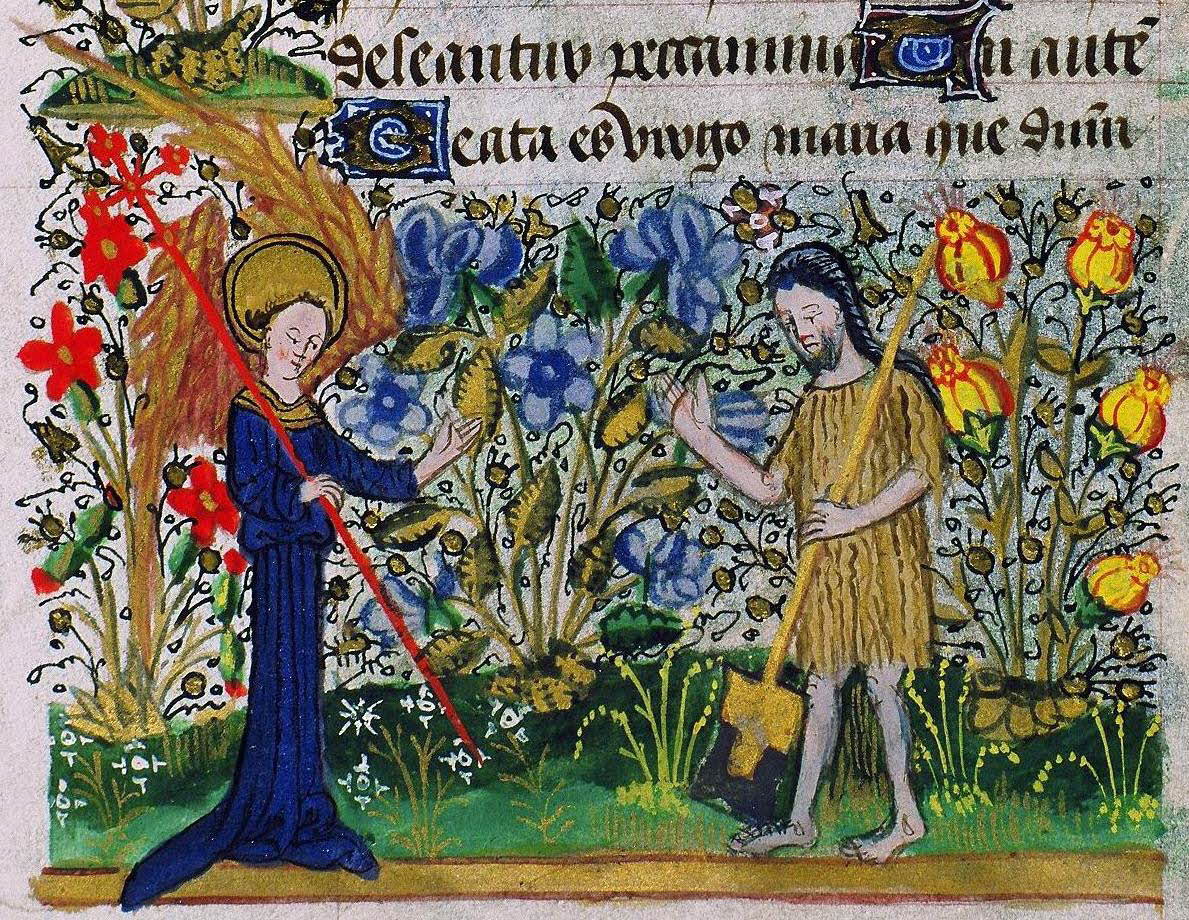 deleantur peccamina Tu autē
Beata es virgo maria que dn̄m